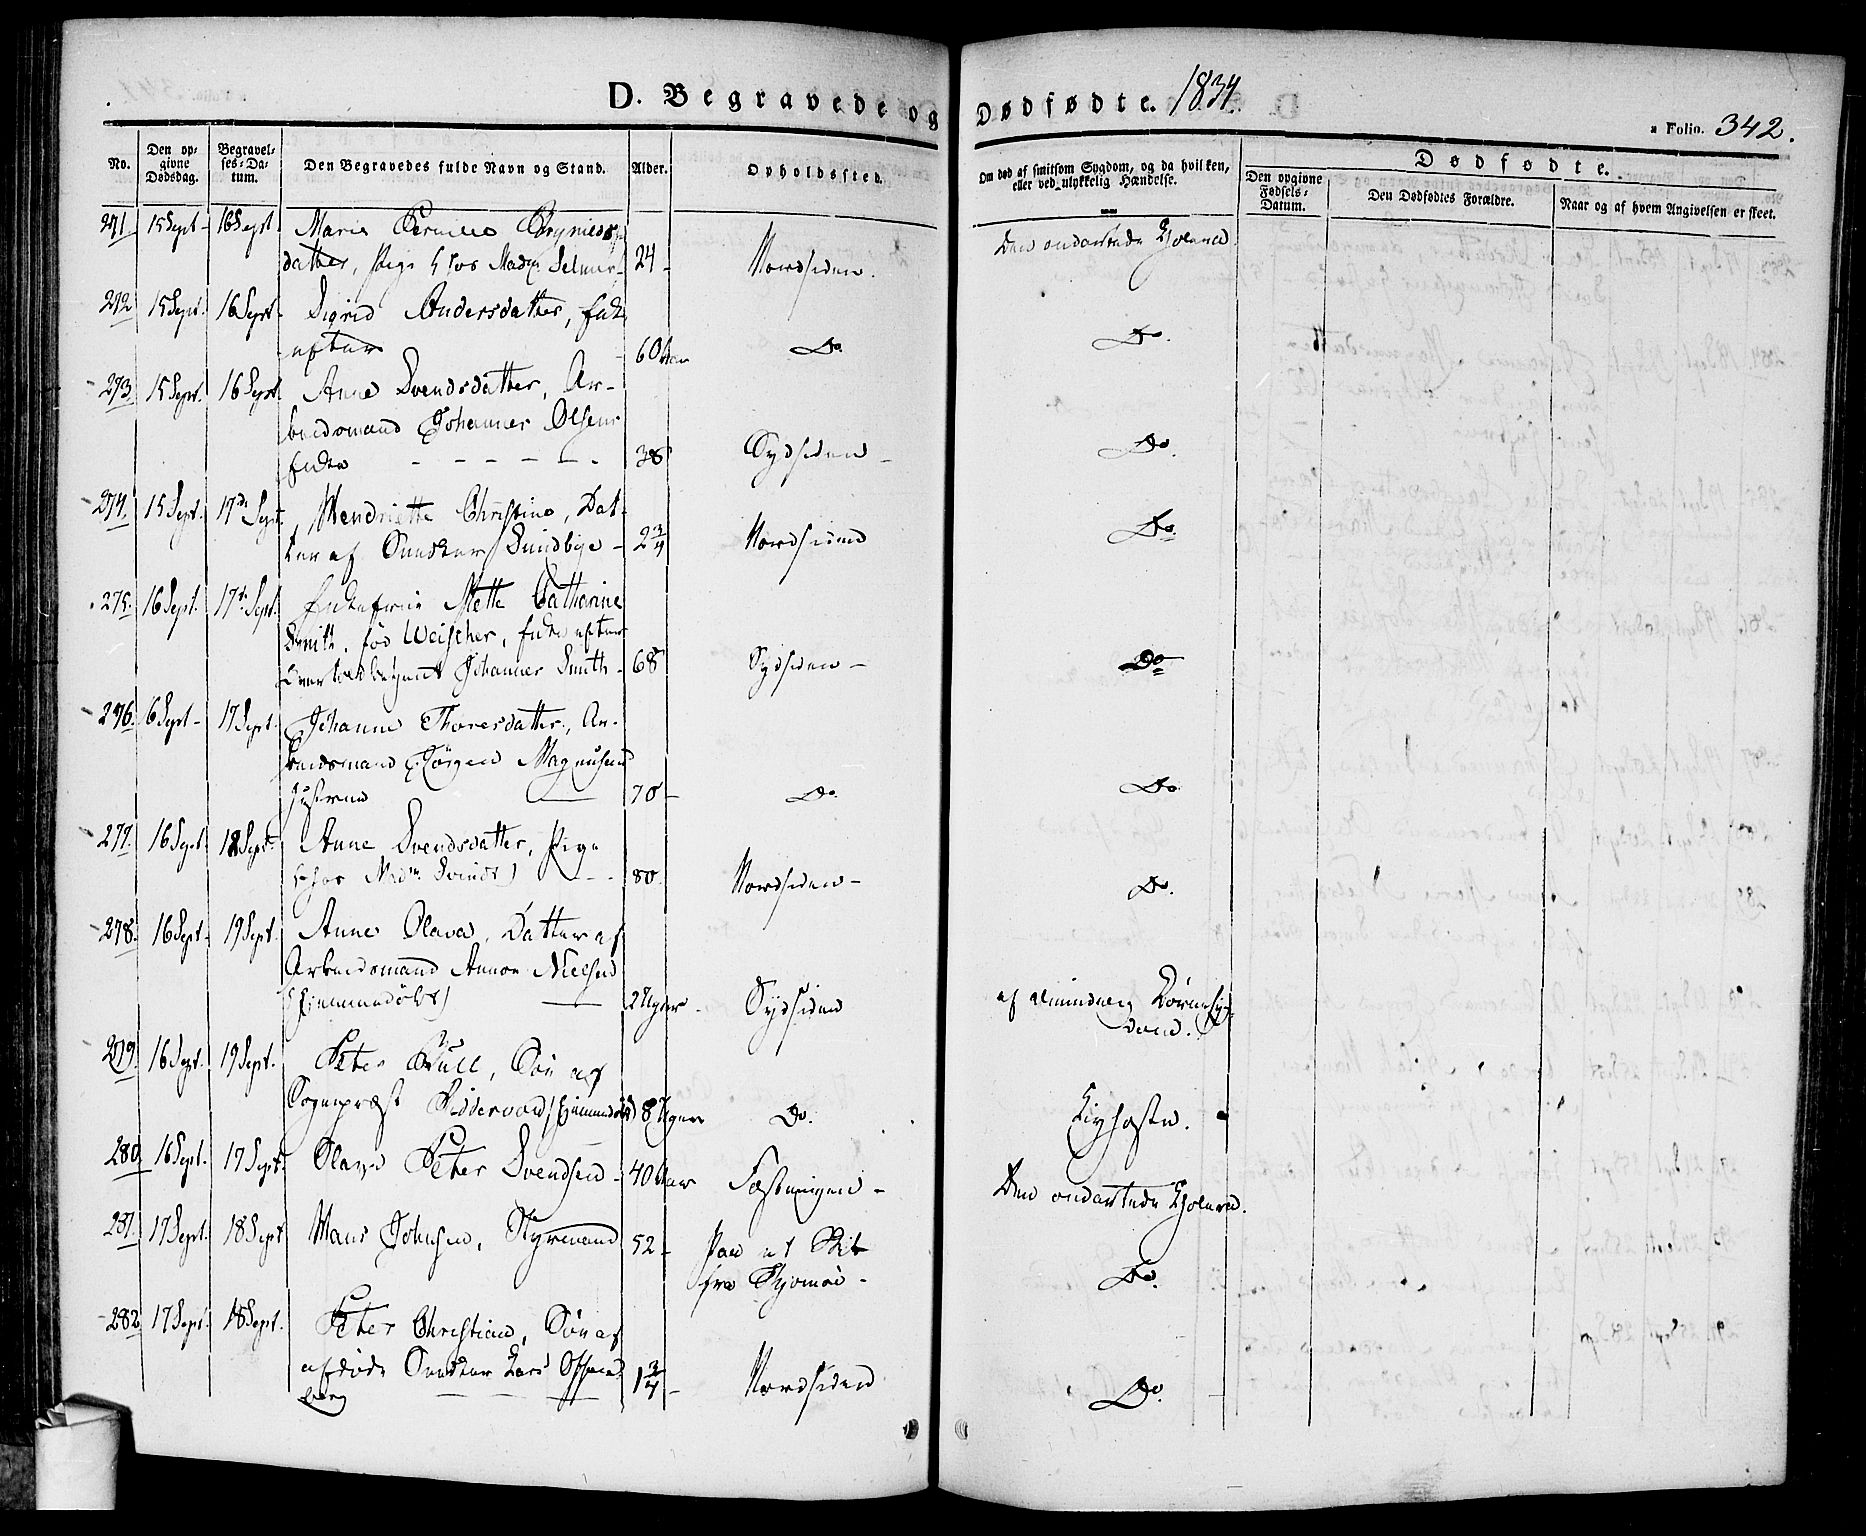 D. Begravede og Dødfødte. 1834.
Folio. 342.
No.
Den op-
givne
Dødsdag.
Begravel-
ses-Da-
tum.
Den Begravedes fulde Navn og Stand.
Alder.
Opholdssted.
Om død af smitsom Sygdom, og da hvilken,
eller ved ulykkelig Hændelse.
Dødfødte.
Den opgivne
Fødsels-
Datum.
Den Dødfødtes Forældre.
Naar og af hvem Angivelsen er skeet.
271. 15 Sept 16 Sept Maria
datter, Pige hos Madm Selmer 24 Nordsiden. Den ondartede Cholera.
272 15 Sept. 16 Sept. Sigrid Andersdatter, Enke
60 Aar Do. Do.
273. 15 Sept. 16 Sept. Anne Svendsdatter, Ar-
beidsmand Johannes Olsens
Enke 38 Sydsiden Do.
274. 15 Sept. 17de Sept. Hendriette Christine, Dat-
ter af Snedker Sundbye 2 3/4 Nordsiden Do.
275. 16 Sept. 17de Sept. Enkefrue Mette Catharine
Smith, fød Weischer, Enke efter
Johannes Smith 68 Sydsiden Do
276. 6 Sept 17 Sept. Johanne Thoresdatter, Ar-
beidsmand Jørgen Magnusens
Hustrue 70 Do. Do
277. 16 Sept 18 Sept. Anne Svendsdatter, Pige
hos Madm 80. Nordsiden Do.
278. 16 Sept. 19 Sept. Anne Olava, Datter af
Arbeidsmand Nielsen
(Hjemmedøbt) 2 Uger Sydsiden af almindelig Børnesyg-
dom.
279. 16 Sept. 19 Sept. Peter Bull, Søn af
Sognepræst Riddervold (Hjemmedøbt) 8 Uger Do. Kighoste.
280. 16 Sept. 17 Sept. Slave Peter Svendsen 40 Aar Fæstningen Den ondartede Cholera.
281. 17 Sept. 18 Sept Hans Johnsen, Styrmand 52 Paa et Skib
fra Do.
282 17 Sept. 18 Sept. Peter Christian, Søn af
afdøde Snedker Lars
berg 1 3/4 Nordsiden Do.